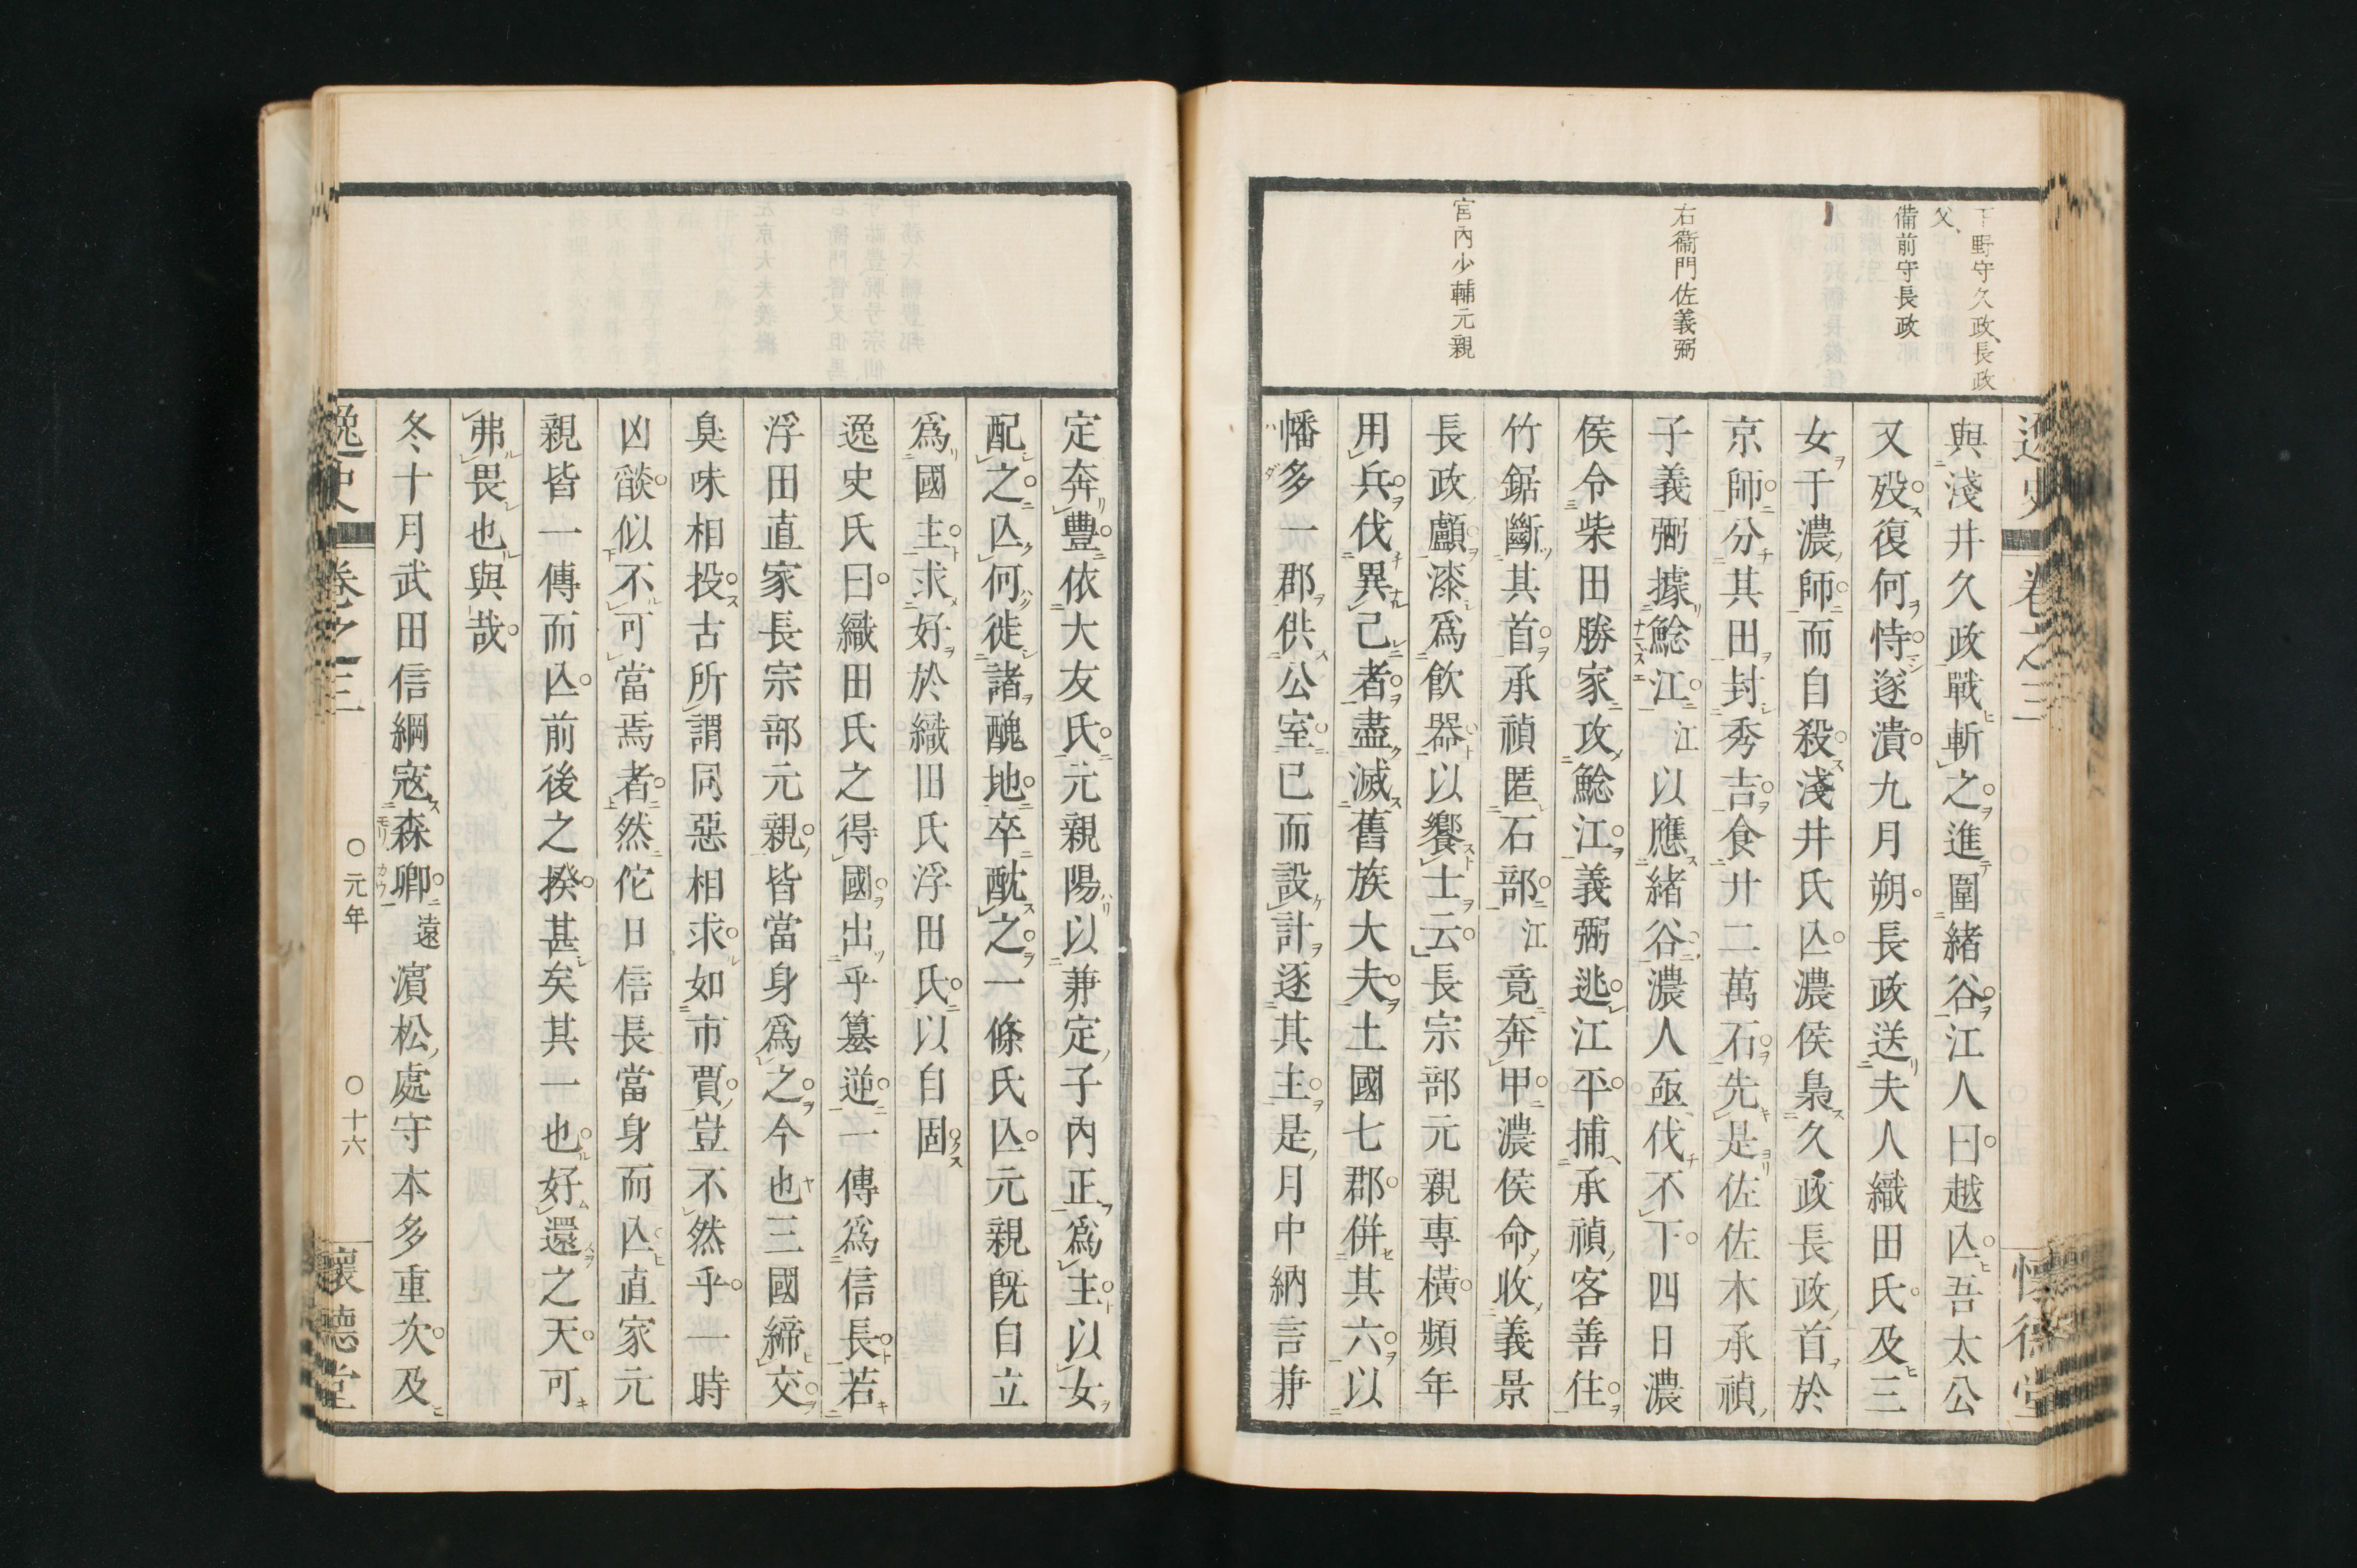 下野守久政、長政
父、
備前守長政
右衞門佐義弼
宮內少輔元親
逸史
卷之三
懷德堂
與淺井久政戰斬之進圍緒谷江人曰越亾吾太公
又歿復何恃遂潰九月朔長政送夫人織田氏及三
女于濃師而自殺淺井氏亾濃侯梟久政長政首於
京師分其田封秀吉食廿二萬石先是佐佐木承禎
子義弼據鯰江江以應緒谷濃人亟伐不下四日濃
侯令柴田勝家攻鯰江義弼逃江平捕承禎客善住
竹鋸斷其首承禎匿石部江竟奔甲濃侯命收義景
長政顱漆爲飮器以饗士云長宗部元親專橫頻年
用兵伐異己者盡滅舊族大夫土國七郡併其六以
幡多一郡供公室已而設計逐其主是月中納言兼
定奔豐依大友氏元親陽以兼定子內正爲主以女
配之亾何徙諸醜地卒酖之一條氏亾元親旣自立
爲國主求好於織田氏浮田氏以自固
逸史氏曰織田氏之得國出乎簒逆一傳爲信長若
浮田直家長宗部元親皆當身爲之今也三國締交
臭味相投古所謂同惡相求如市賈豈不然乎一時
凶燄似不可當焉者然佗日信長當身而亾直家元
親皆一傳而亾前後之揆甚矣其一也好還之天可
弗畏也與哉
冬十月武田信綱寇森卿遠濵松處守本多重次及
逸史
卷之三
○元年
○十六
懷德堂